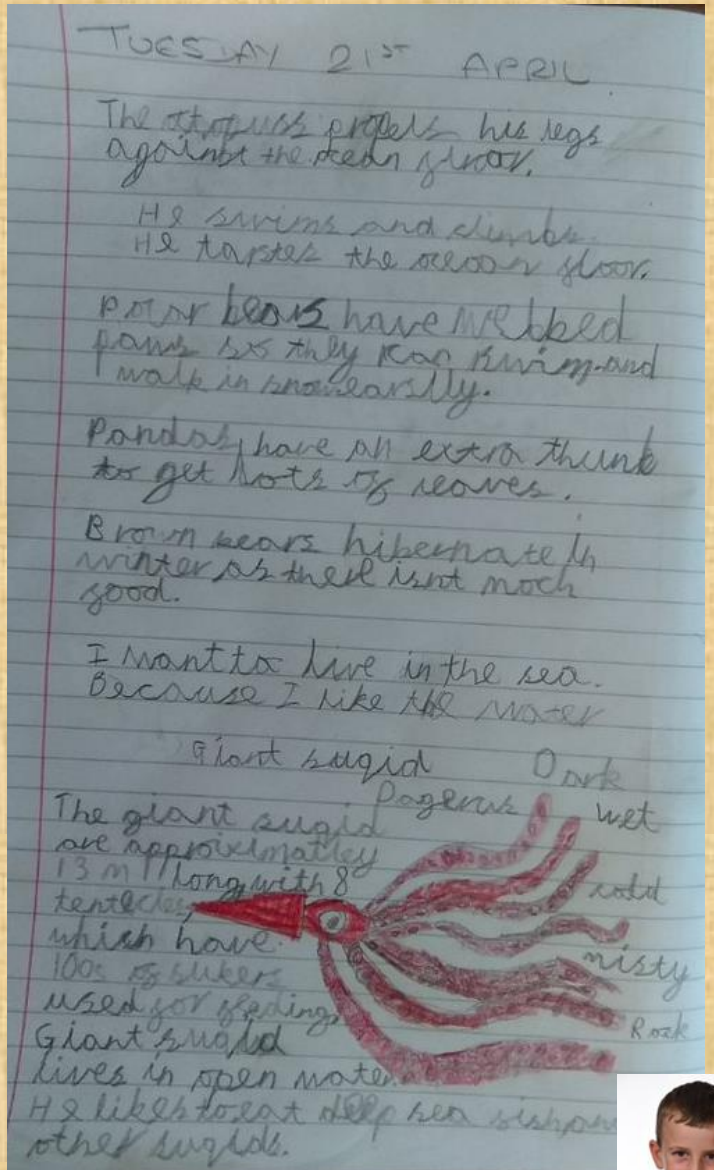 TUESDAY 21ST APRIL
The ottopuss propels his legs
against the ocean floor.
He swims and climbs.
He tastes the ocean floor.
polar bears have webbed
paws so they can swim and
walk in snow earsily.
Pandas have an extra thunb
to get lots of leaves.
Brown bears hibernate in
winter as there isnt moch
food.
I want to live in the sea.
Because I like the water
Giant suqid
Dark
Dagerus
wet
cold
misty
Rock
The giant suqid
are approximatley
13 m long with 8
tentecles
which have
100s of sukers
used for feding.
Giant suqid
lives in open water.
He likes to eat deep sea fish
other suqids.